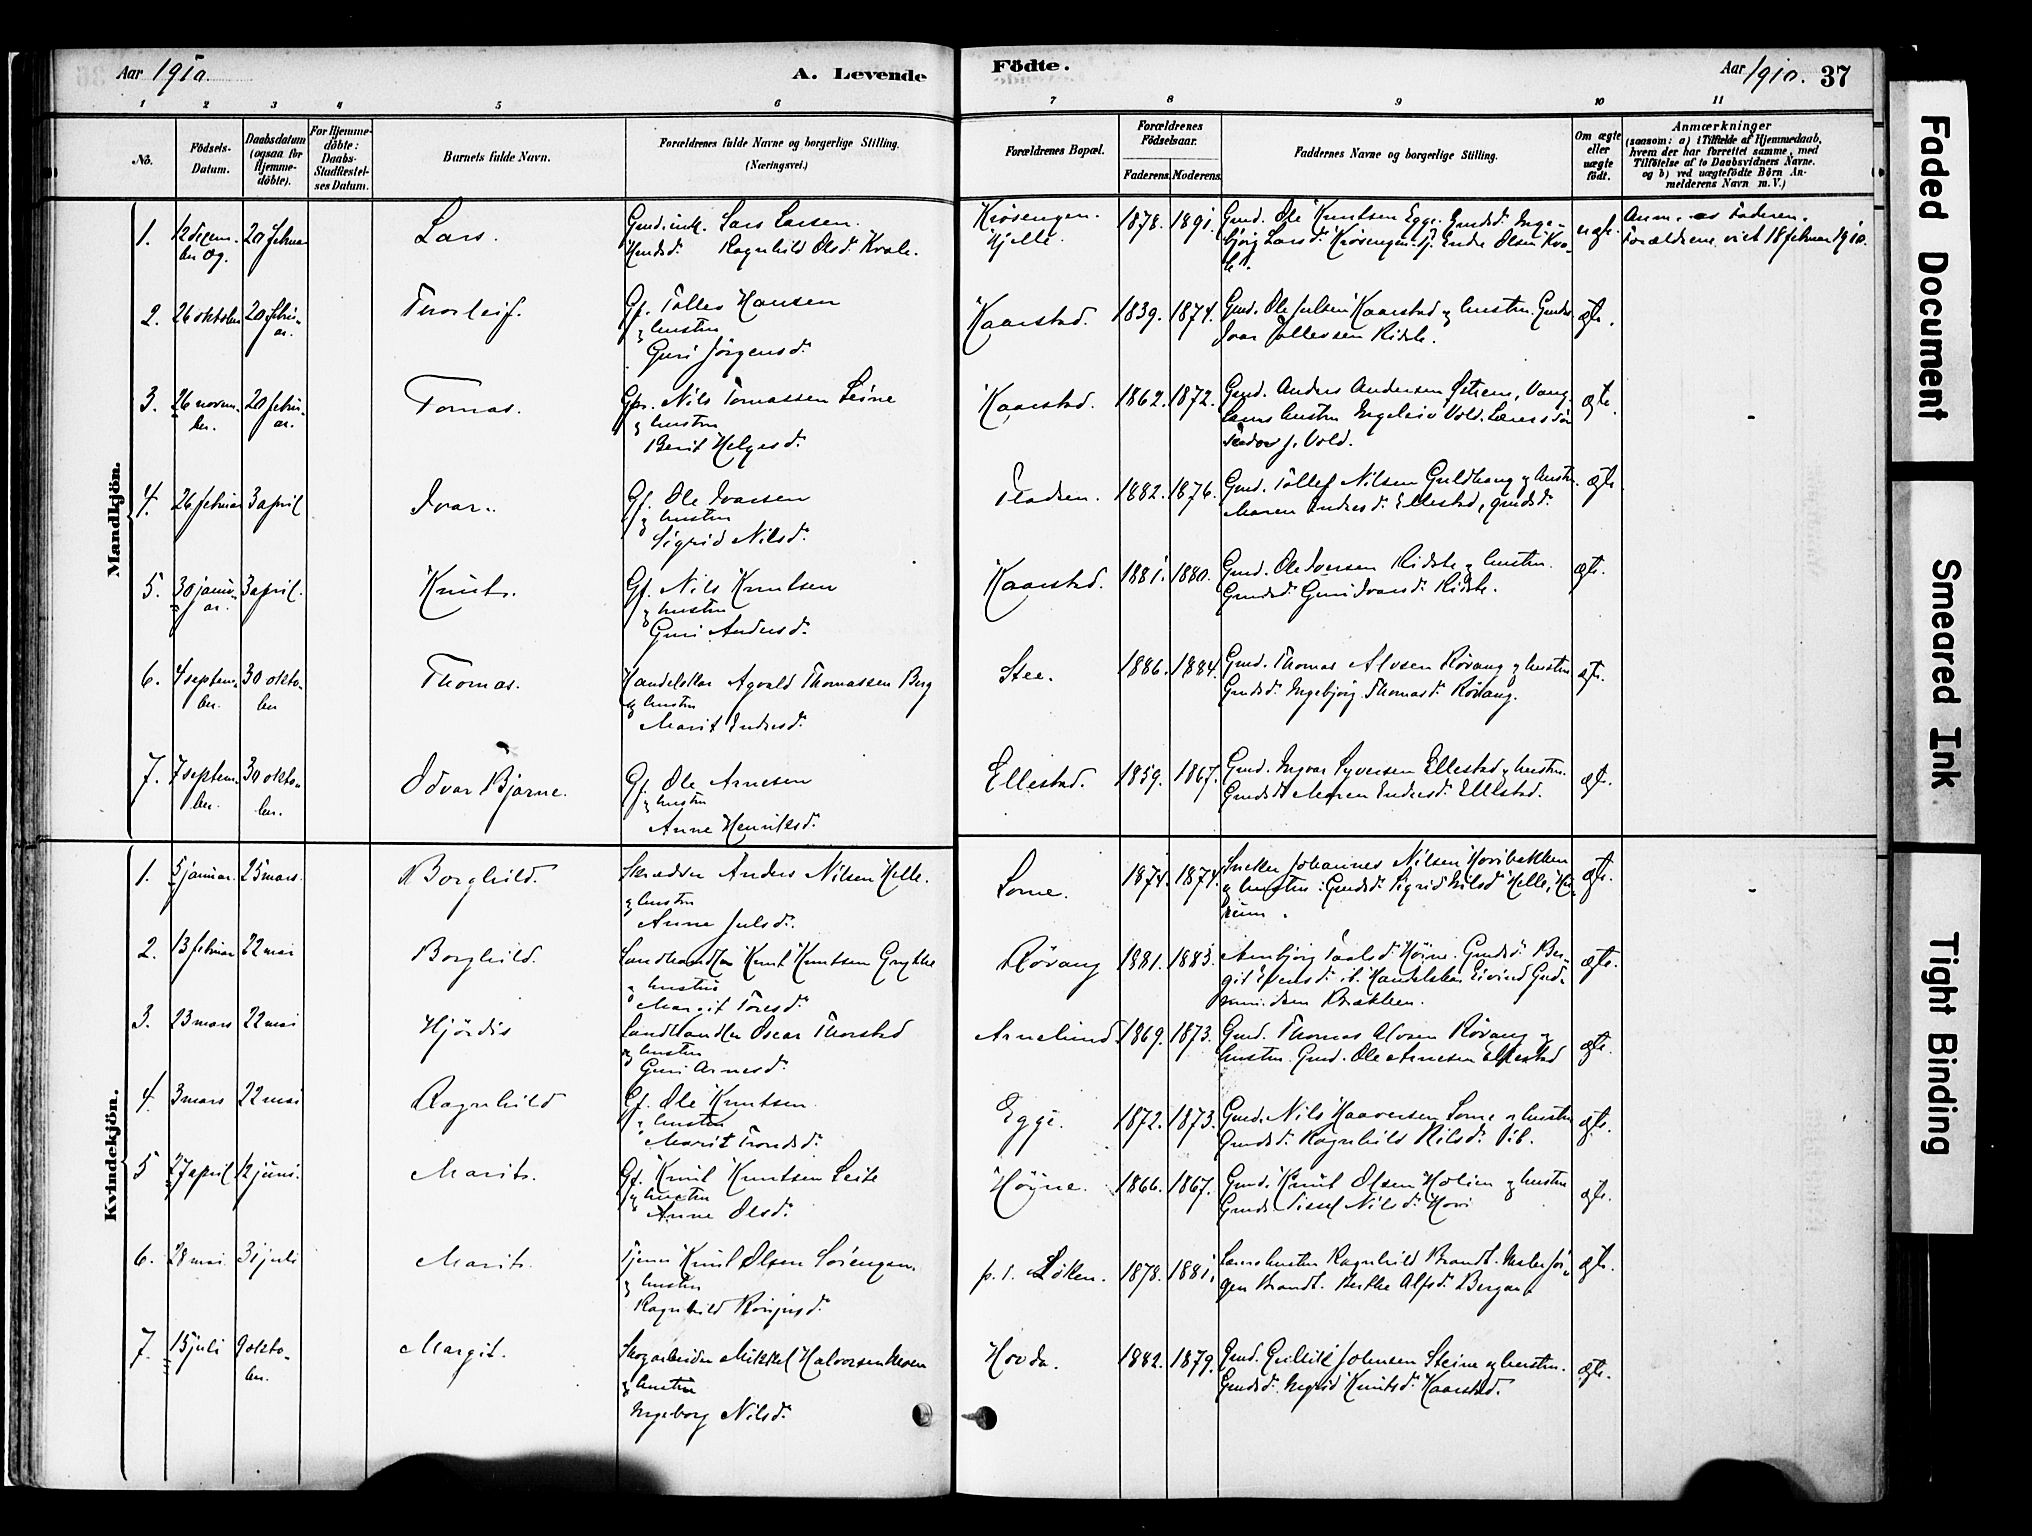 Aar 1910.
A. Levende
Födte.
Aar 1910. 37
1 2 3 4 5 6 7 8 9 10 11
No.
Födsels-Datum.
Daabsdatum (ogsaa for Hjemme-döbte).
For Hjemme-döbte: Daabs-Stadfæstel-ses Datum.
Barnets fulde Navn.
Forældrenes fulde Navne og borgerlige Stilling.
(Næringsvei.)
Forældrenes Bopæl.
Forældrenes Födselsaar.
Faderens. Moderens.
Faddernes Navne og borgerlige Stilling.
Om ægte eller uægte födt.
Anmærkninger
(saasom: a) i Tilfælde af Hjemmedaab,
hvem der har forrettet samme, med
Tilföielse af to Daabsvidners Navne.
og b) ved uægtefödte Börn An-
melderens Navn m. V.)
Mandkjön.
1. 12 decem-ber 09. 20 februar Lars.
Gmd. Lars Larsen.
Ragnhild Olsd. Kvale.
Krösengen. Hjelle. 1878. 1891.
Gmd. Ole Knutsen Egge. Gmdsd. Inge-
björg Larsd. Krösengen. Endre Olsen Kva-
le.
uægte.
Anm. av Faderen.
Forældrene viet 18 februar 1910.
2. 26 oktober 20 febru-ar. Thorleif.
Gf. Tollev Hansen
og hustru
Guri Jörgensd.
Kaarstad. 1839. 1874.
Gmd. Ole Julsen Kaarstad og hustru. Gmdss.
Ivar Tollevsen Ridste.
ægte.
3. 26 novem-ber. 20 febru-ar. Tomas.
Gpr. Nils Tomassen Leine
og hustru
Berit Helgesd.
Kaarstad. 1862. 1872.
Gmd. Anders Andersen Östrem, Vang.
hustru Ingeleiv Vold.
J. Vold.
ægte.
4. 26 februar 3 april Ivar.
Gf. Ole Ivarsen
og hustru
Sigrid Nilsd.
Fladsen. 1882. 1876.
Gmd. Tollef Nilsen Guldhaug og hustru.
Maren Endresd. Ellestad, gmdsd.
ægte
5. 30 janu-ar. 3 april. Knut.
Gf. Nils Knutsen
og hustru
Guri Andersd.
Kaarstad. 1881. 1880.
Gmd. Ole Iversen Ridste og hustru.
Gmdsd. Guri Ivarsd. Ridste.
ægte.
6. 4 septem-ber. 30 okto-ber Thomas.
Handelskar Agvald Thomassen Berg
og hustru
Marit Endresd.
Stee. 1886. 1884.
Gmd. Thomas Alvsen Rövang og hustru
Gmdsd. Ingebjörg Thomasd. Rövang.
ægte.
7. 7 septem-ber. 30 okto-ber. Odvar Bjarne.
Gf. Ole Arnesen
og hustru
Anne Henriksd.
Ellestad. 1859. 1867.
Gmd. Ingvar Syversen Ellestad og hustru.
Gmdsd. Maren Endresd. Ellestad.
ægte.
Kvindekjön.
1. 5 januar. 25 mars. Borghild.
Skrædder Anders Nilsen Helle.
og hustru
Anne Julsd.
Lome. 1874. 1874.
Snekker Johannes Nilsen Hovibakken
og hustru. Gmdsd. Sigrid Nilsd. Helle, Hu-
rum.
ægte.
2. 13 februar 22 mai Borghild.
Landhandler Knut Knutsen Grytke
og hustru
Margit Toresd.
Rövang 1881. 1883.
Arnbjörg Paalsd. Höine. Gmdsd. Ber-
git Handelskar Eivind Gud-
Brækken.
ægte.
3. 23 mars 22 mai Hjördis
Landhandler Oscar Thorstad
og hustru
Guri Arnesd.
Arnelund. 1869. 1873.
Gmd. Thomas Alvsen Rövang og
hustru. Gmd. Ole Arnesen Ellestad
ægte.
4. 3 mars 22 mai Ragnhild
Gf. Ole Knutsen
og hustru
Marit Trondsd.
Egge. 1872. 1873.
Gmd. Nils Haaversen Lome og hustru
Gmdsd. Ragnhild Nilsd.
ægte.
5 27 april 12 juni. Marit.
Gf. Knut Knutsen Leite
og hustru
Anne Olsd.
Höyne. 1866. 1867.
Gmd. Knut Olsen Holien og hustru
Gmdsd. Sissel Nilsd. Hovi
ægte.
6. 28 mai. 31 juli Marit.
Tjener Knut Olsen Sörengen.
og hustru
Ragnhild
p. t. Löken. 1878. 1881.
Lærerhustru Ragnhild Brandt. Maler Jör-
gen Brandt. Berthe Alfsd. Bergan.
ægte.
7. 15 juli 9 okto-ber. Margit.
Skogarbeider Mikkel Halvorsen Moen
og hustru
Ingeborg Nilsd.
Hovda. 1882. 1879.
Gmd. Gullik Johnsen Steine og hustru.
Gmdsd. Ingrid Knutsd. Kaarstad.
ægte.
Faded Document
Smeared Ink
Tight Binding